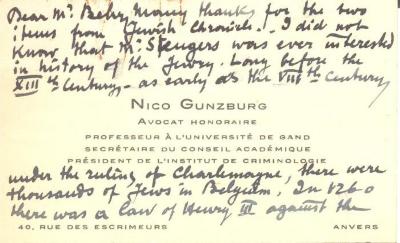 Dear Mr Behr, Many thanks for the two
items from Jewish Chronicle. - I did not
Know that Mr Spengers was ever interested
in history of the Jewry. Long before the
XIIIth Century - as early as the VIIIth Century,
NICO GUNZBURG
AVOCAT HONORAIRE
PROFESSEUR À L'UNIVERSITÉ DE GAND
SECRÉTAIRE DU CONSEIL ACADÉMIQUE
PRÉSIDENT DE L'INSTITUT DE CRIMINOLOGIE
under the ruling of Charlemagne, there were
thousands of Jews in Belgium. In 1260
there was a law of Henry III against the
40, RUE DES ESCRIMEURS ANVERS